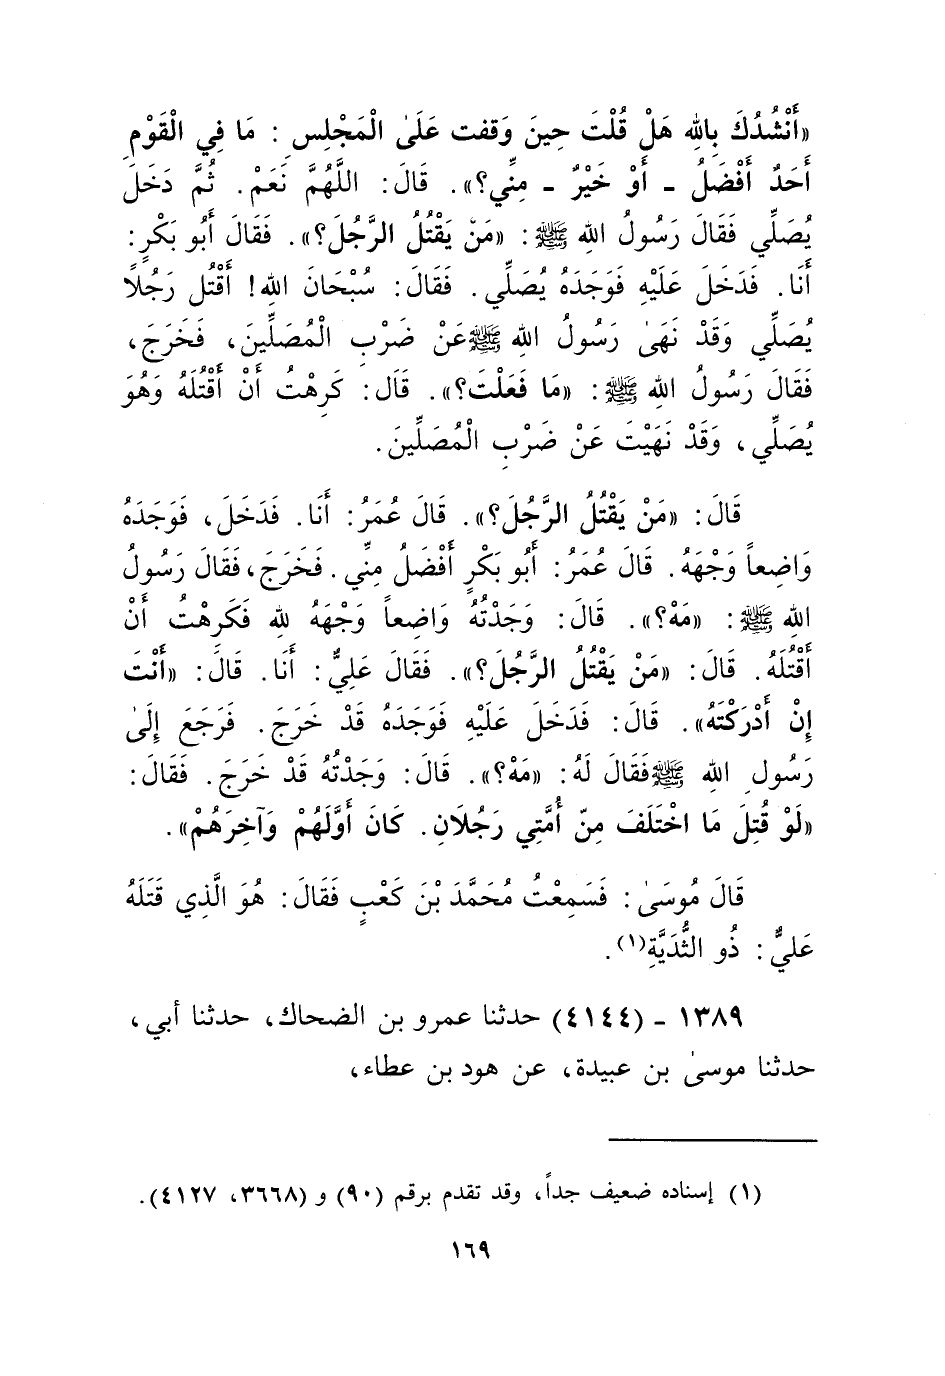 «أَنْشُدُكَ بِاللهِ هَلْ قُلْتَ حِينَ وَقفت عَلَىٰ الْمَجْلِسِ : مَا فِي الْقَوْمِ
أَحَدٌ أَفْضَلُ - أَوْ خَيْرٌ - مِنِّي؟». قَالَ: اللَّهُمَّ نَعَمْ. ثُمَّ دَخَلَ
يُصَلِّي فَقَالَ رَسُولُ اللهِ ﷺ: «مَنْ يَقْتُلُ الرَّجُلَ؟». فَقَالَ أَبُو بَكْرٍ:
أَنَا. فَدَخَلَ عَلَيْهِ فَوَجَدَهُ يُصَلِّي. فَقَالَ: سُبْحَانَ اللهِ! أَقْتُل رَجُلًا
يُصَلِّي وَقَدْ نَهَىٰ رَسُولُ اللهِ ﷺ عَنْ ضَرْبِ الْمُصَلِّينَ، فَخَرَجَ،
فَقَالَ رَسُولُ اللهِ ﷺ: «مَا فَعَلْتَ؟». قَالَ: كَرِهْتُ أَنْ أَقْتُلَهُ وَهُوَ
يُصَلِّي، وَقَدْ نَهَيْتَ عَنْ ضَرْبِ الْمُصَلِّينَ.
قَالَ: «مَنْ يَقْتُلُ الرَّجُلَ؟». قَالَ عُمَرُ: أَنَا. فَدَخَلَ، فَوَجَدَهُ
وَاضِعاً وَجْهَهُ. قَالَ عُمَرُ: أَبُو بَكْرٍ أَفْضَلُ مِنِّي. فَخَرَجَ، فَقَالَ رَسُولُ
اللهِ ﷺ: «مَهْ؟». قَالَ: وَجَدْتُهُ وَاضِعاً وَجْهَهُ لِلهِ فَكَرِهْتُ أَنْ
أَقْتُلَهُ. قَالَ: «مَنْ يَقْتُلُ الرَّجُلَ؟». فَقَالَ عَلِيٌّ: أَنَا. قَالَ: «أَنْتَ
إِنْ أَدْرَكْتَهُ». قَالَ: فَدَخَلَ عَلَيْهِ فَوَجَدَهُ قَدْ خَرَجَ. فَرَجَعَ إِلَىٰ
رَسُولِ اللهِ ﷺ فَقَالَ لَهُ: «مَهْ؟». قَالَ: وَجَدْتُهُ قَدْ خَرَجَ. فَقَالَ:
«لَوْ قُتِلَ مَا اخْتَلَفَ مِنْ أُمَّتِي رَجُلَانِ. كَانَ أَوَّلَهُمْ وَآخِرَهُمْ».
قَالَ مُوسَىٰ: فَسَمِعْتُ مُحَمَّدَ بْنَ كَعْبٍ فَقَالَ: هُوَ الَّذِي قَتَلَهُ
عَلِيٌّ: ذُو الثُّدَيَّةِ(١).
١٣٨٩ - (٤١٤٤) حدثنا عمرو بن الضحاك، حدثنا أبي،
حدثنا موسىٰ بن عبيدة، عن هود بن عطاء،
(١) إسناده ضعيف جداً، وقد تقدم برقم (٩٠) و (٣٦٦٨، ٤١٢٧).
١٦٩